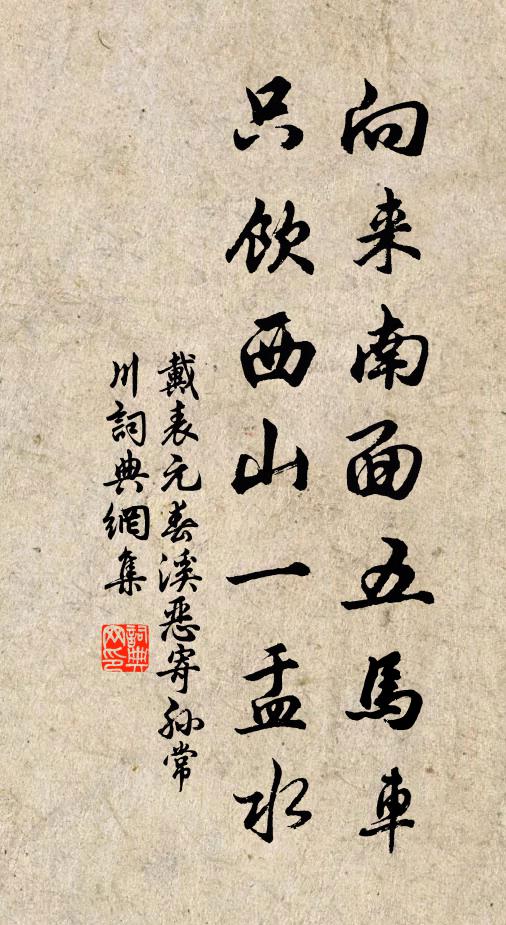 向来南面五馬車
只飲西山一盂水
戴表元春溪惡寄孙常
川詞典網集
詞典
网印